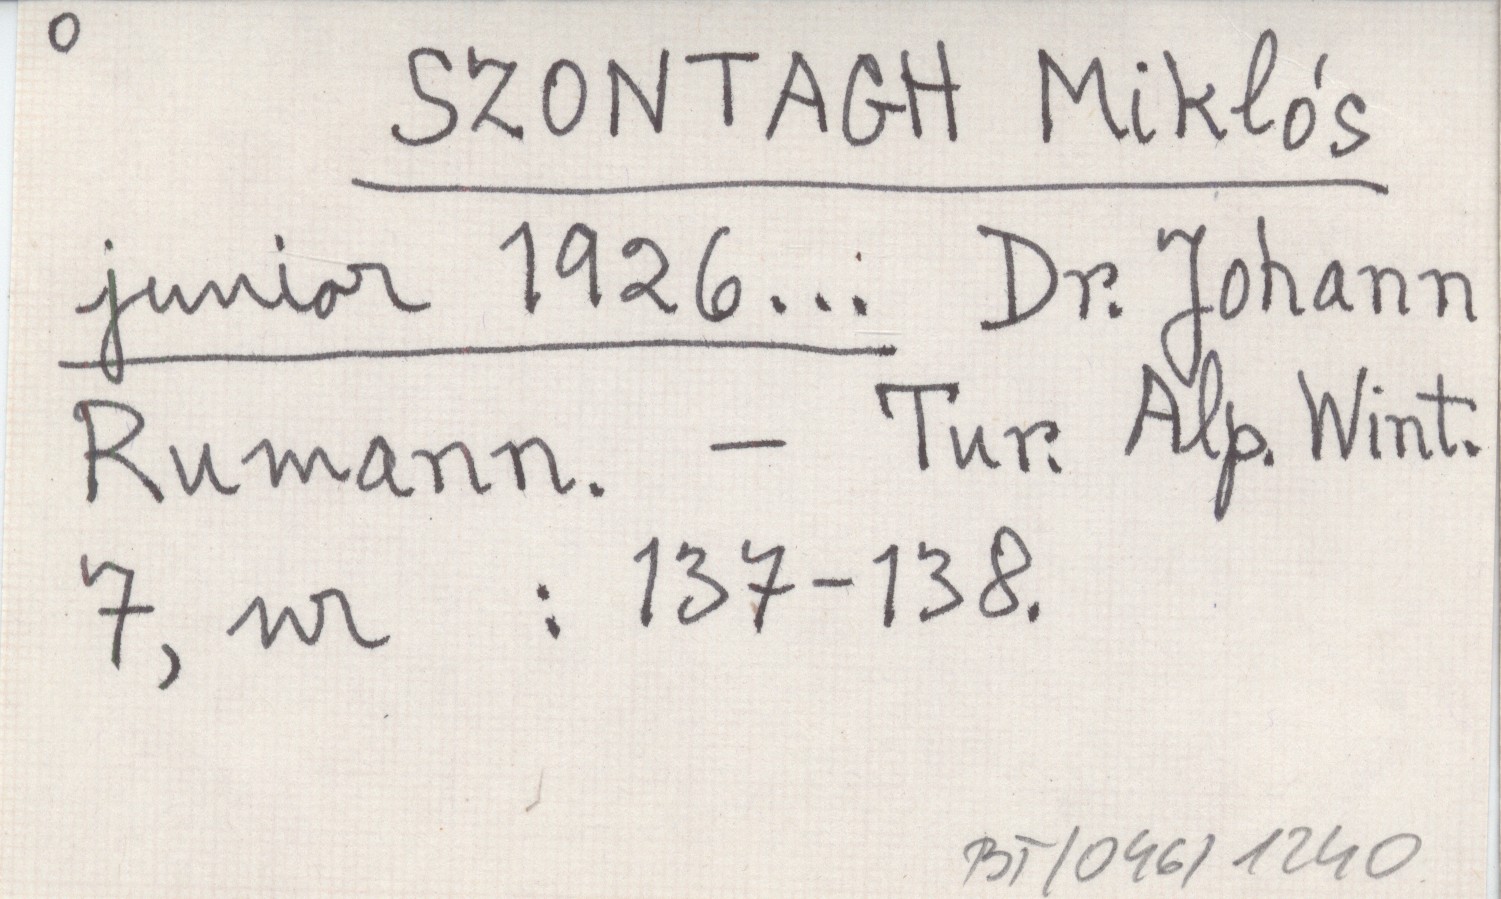 o
SZONTAGH Miklós
junior 1926...: Dr. Johann
Rumann. – Tur. Alp. Wint.
7, nr : 137-138.
BT/046/1240